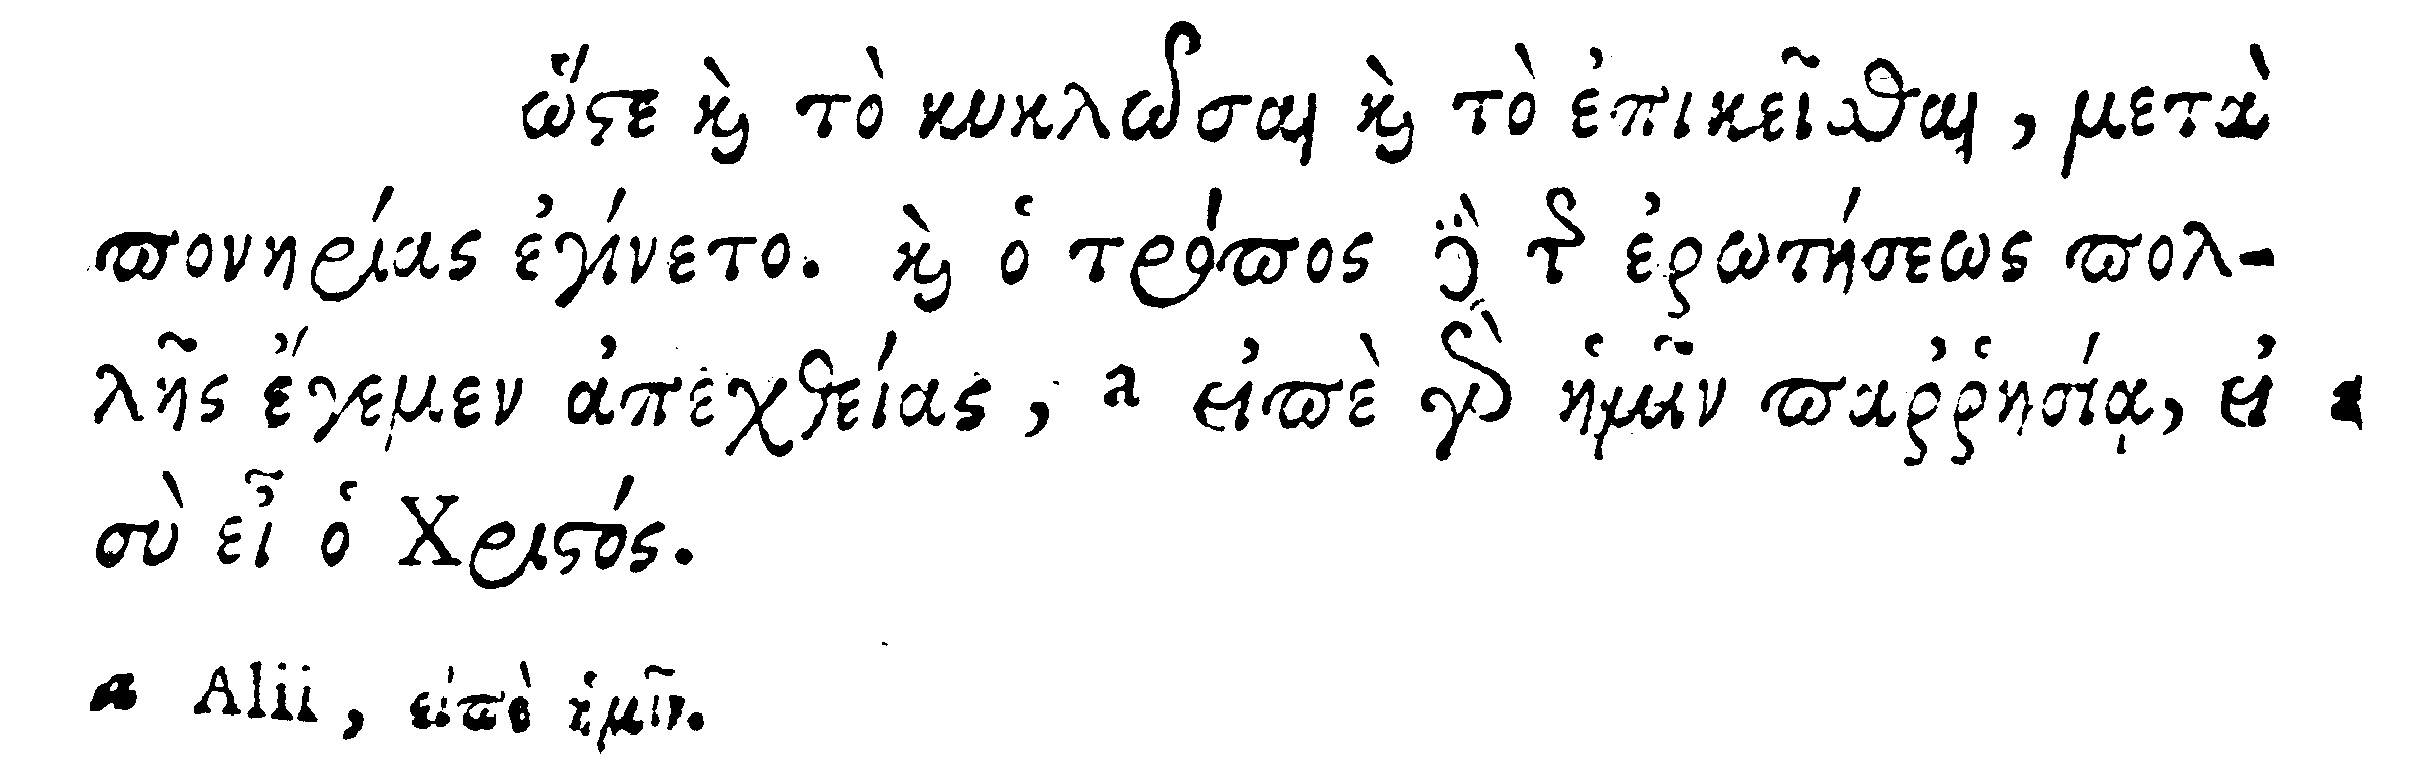 ὥστε καὶ τὸ κυκλῶσαι καὶ τὸ ἐπικεῖσθαι, μετὰ
πονηρίας ἐγίνετο. καὶ ὁ τρόπος δὲ τῆς ἐρωτήσεως πολ-
λῆς ἔγεμεν ἀπεχθείας, a εἰπὲ γὰρ ἡμῖν παῤῥησίᾳ, εἰ a
σὺ εἶ ὁ Χριστός.
a Alii, εἰπὲ ἡμῖν.